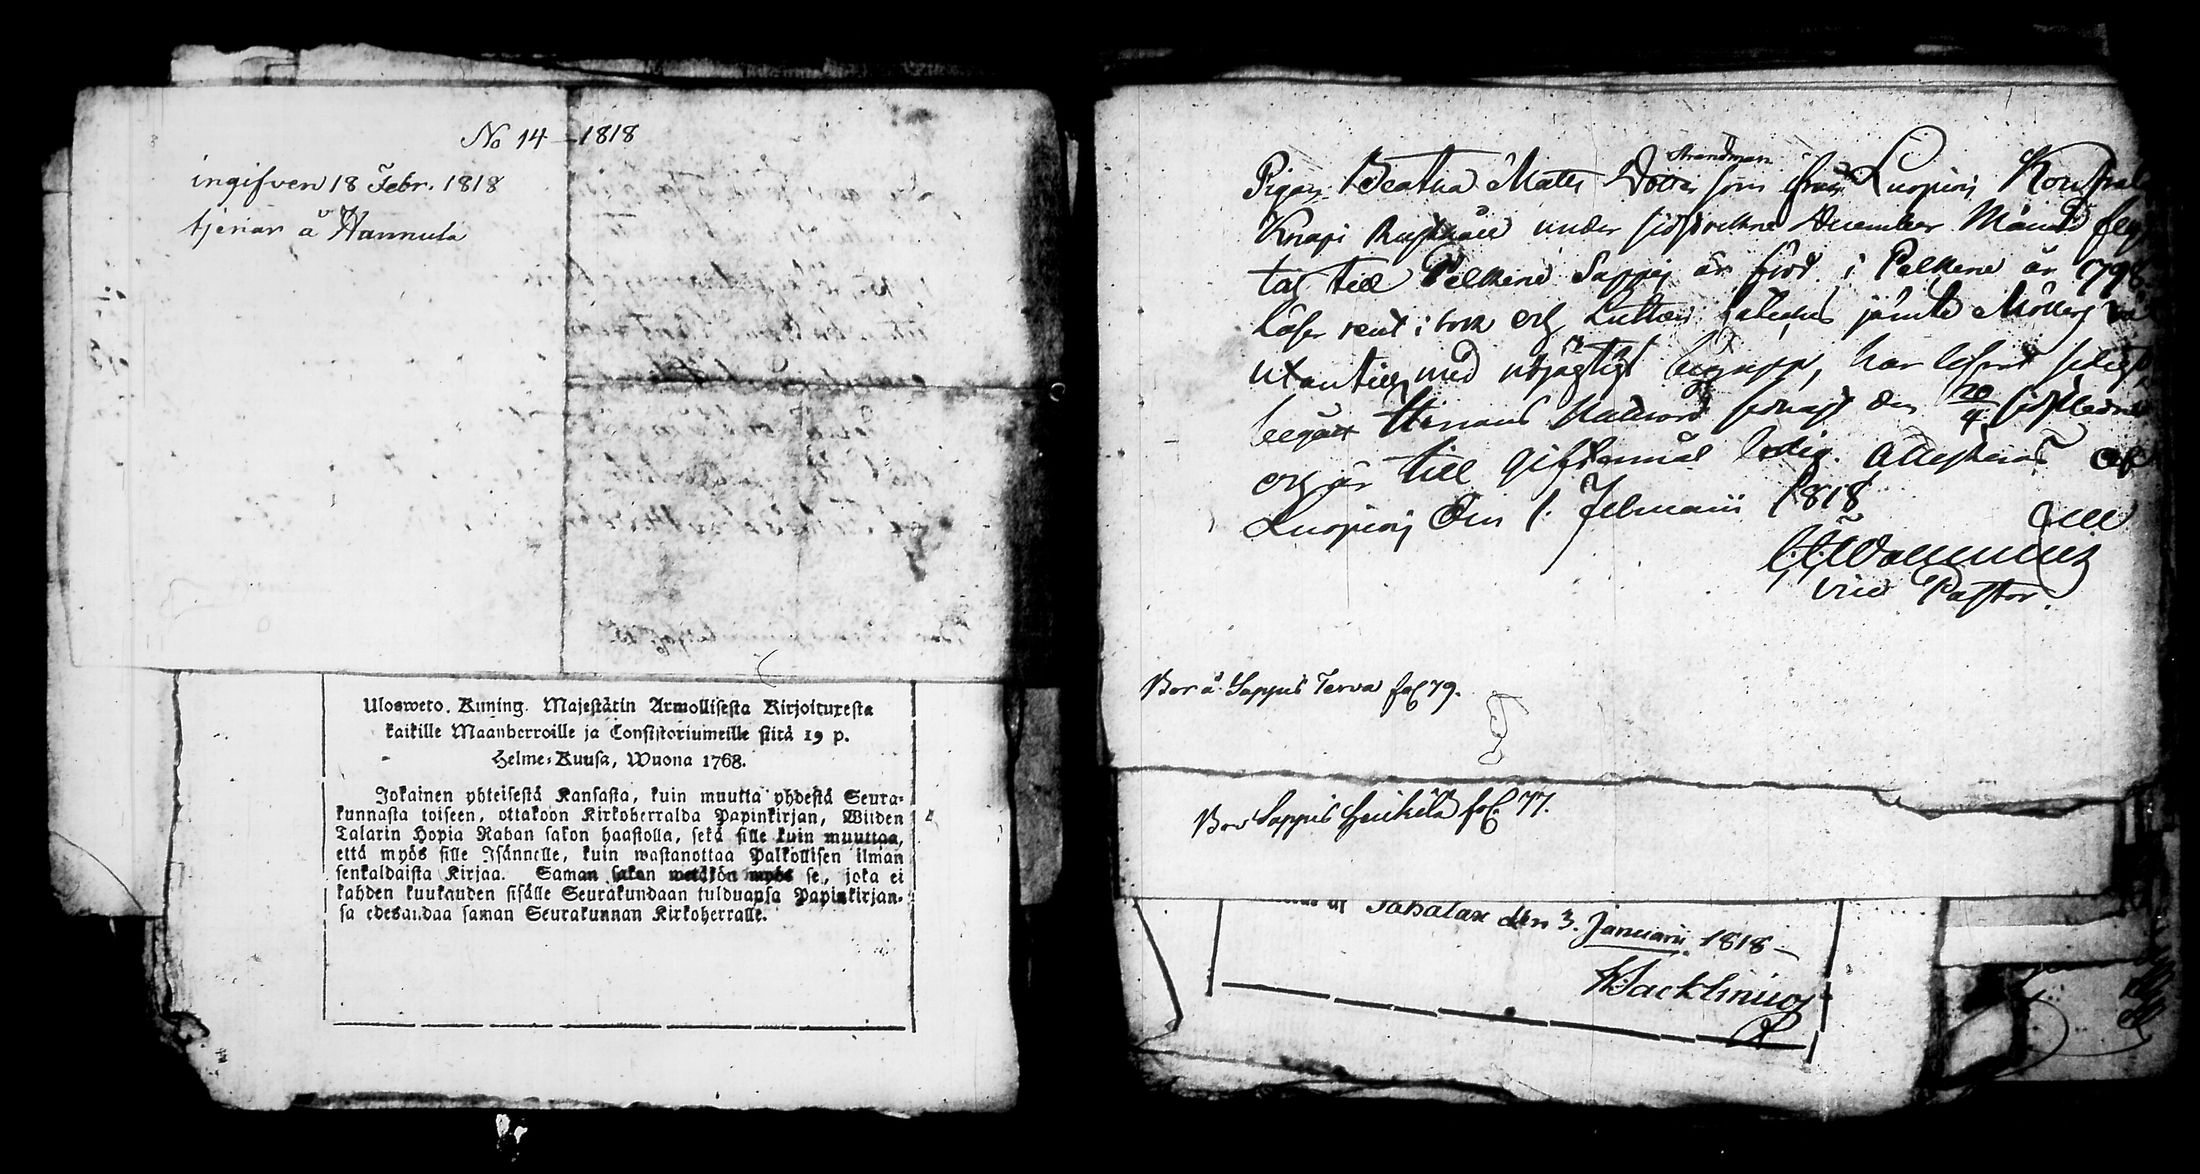 No 14 - 1818
ingifven 18 Febr. 1818
tjenar å Hannula
Ulosweto. Kuning. Majestätin Armollisesta Kirjoituxesta
kaikille Maanherroille ja Consistoriumeille siitä 19 p.
Helme-Kuusa, Wuona 1768.
Jokainen yhteisestä Kansasta, kuin muutta yhdestä Seura-
kunnasta toiseen, ottakoon Kirkoherralda Papinkirjan, Wiiden
Talarin Hopia Rahan sakon haastolla, sekä sille kuin muuttaa,
että myös sille Isännelle, kuin wastanottaa Palkollisen ilman
senkaldaista Kirjaa. Saman sakon wetäkön myös se, joka ei
kahden kuukauden sisälle Seurakundaan tulduansa Papinkirjan-
sa edesandaa saman Seurakunnan Kirkoherralle.
Strandman
Pigan Beatha Mats Dotter som från Luopiois
Knapi under December Månad
till Pelkene Sappé är född i Pelkene år 1798
Läser rent i bok och Lutheri jämte
utantill med nöjagtigt begrepp, har
begått Herrans Nattvard den 20/4 sistledne
och är till giftermål ledig. Attesteras
Luopiois den 1. Februarii 1818
Vice Pastor.
Bor å Sappus Terva fol 79.
Bor Sappus Heikilä fol 77.
Sahalax den 3. Januarii 1818 -